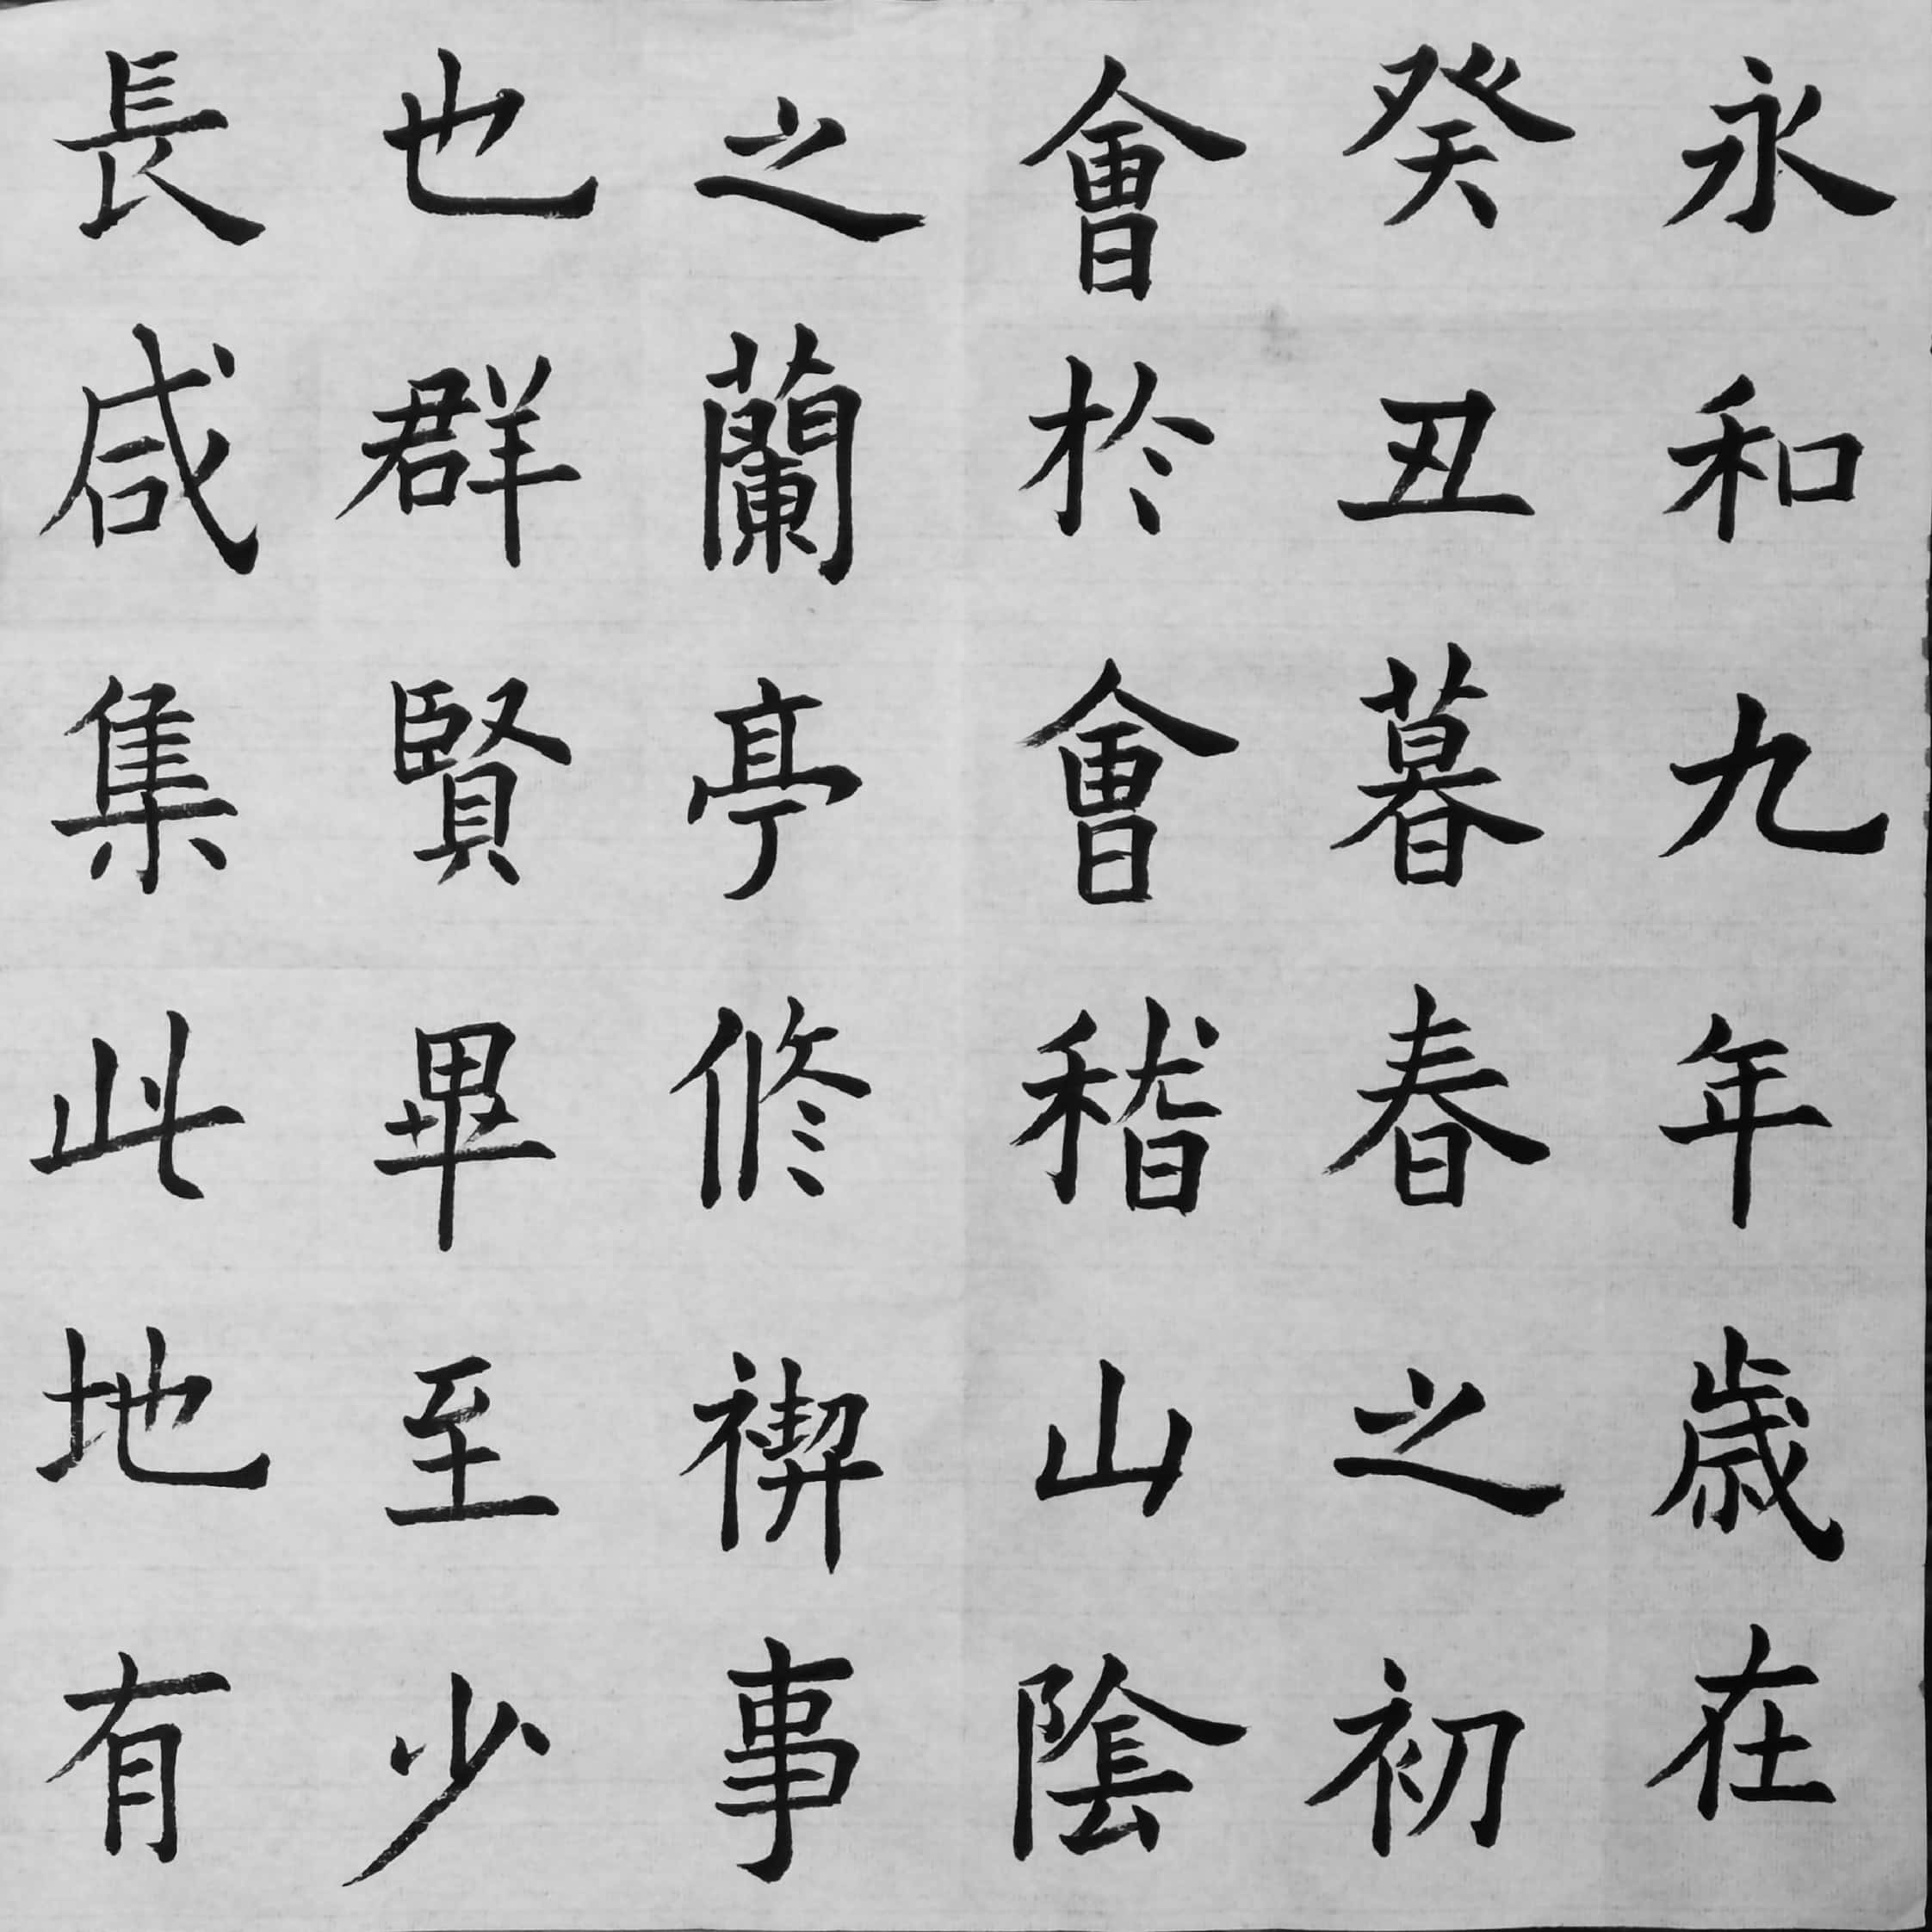 永和九年歲在
癸丑暮春之初
會於會稽山陰
之蘭亭修禊事
也群賢畢至少
長咸集此地有